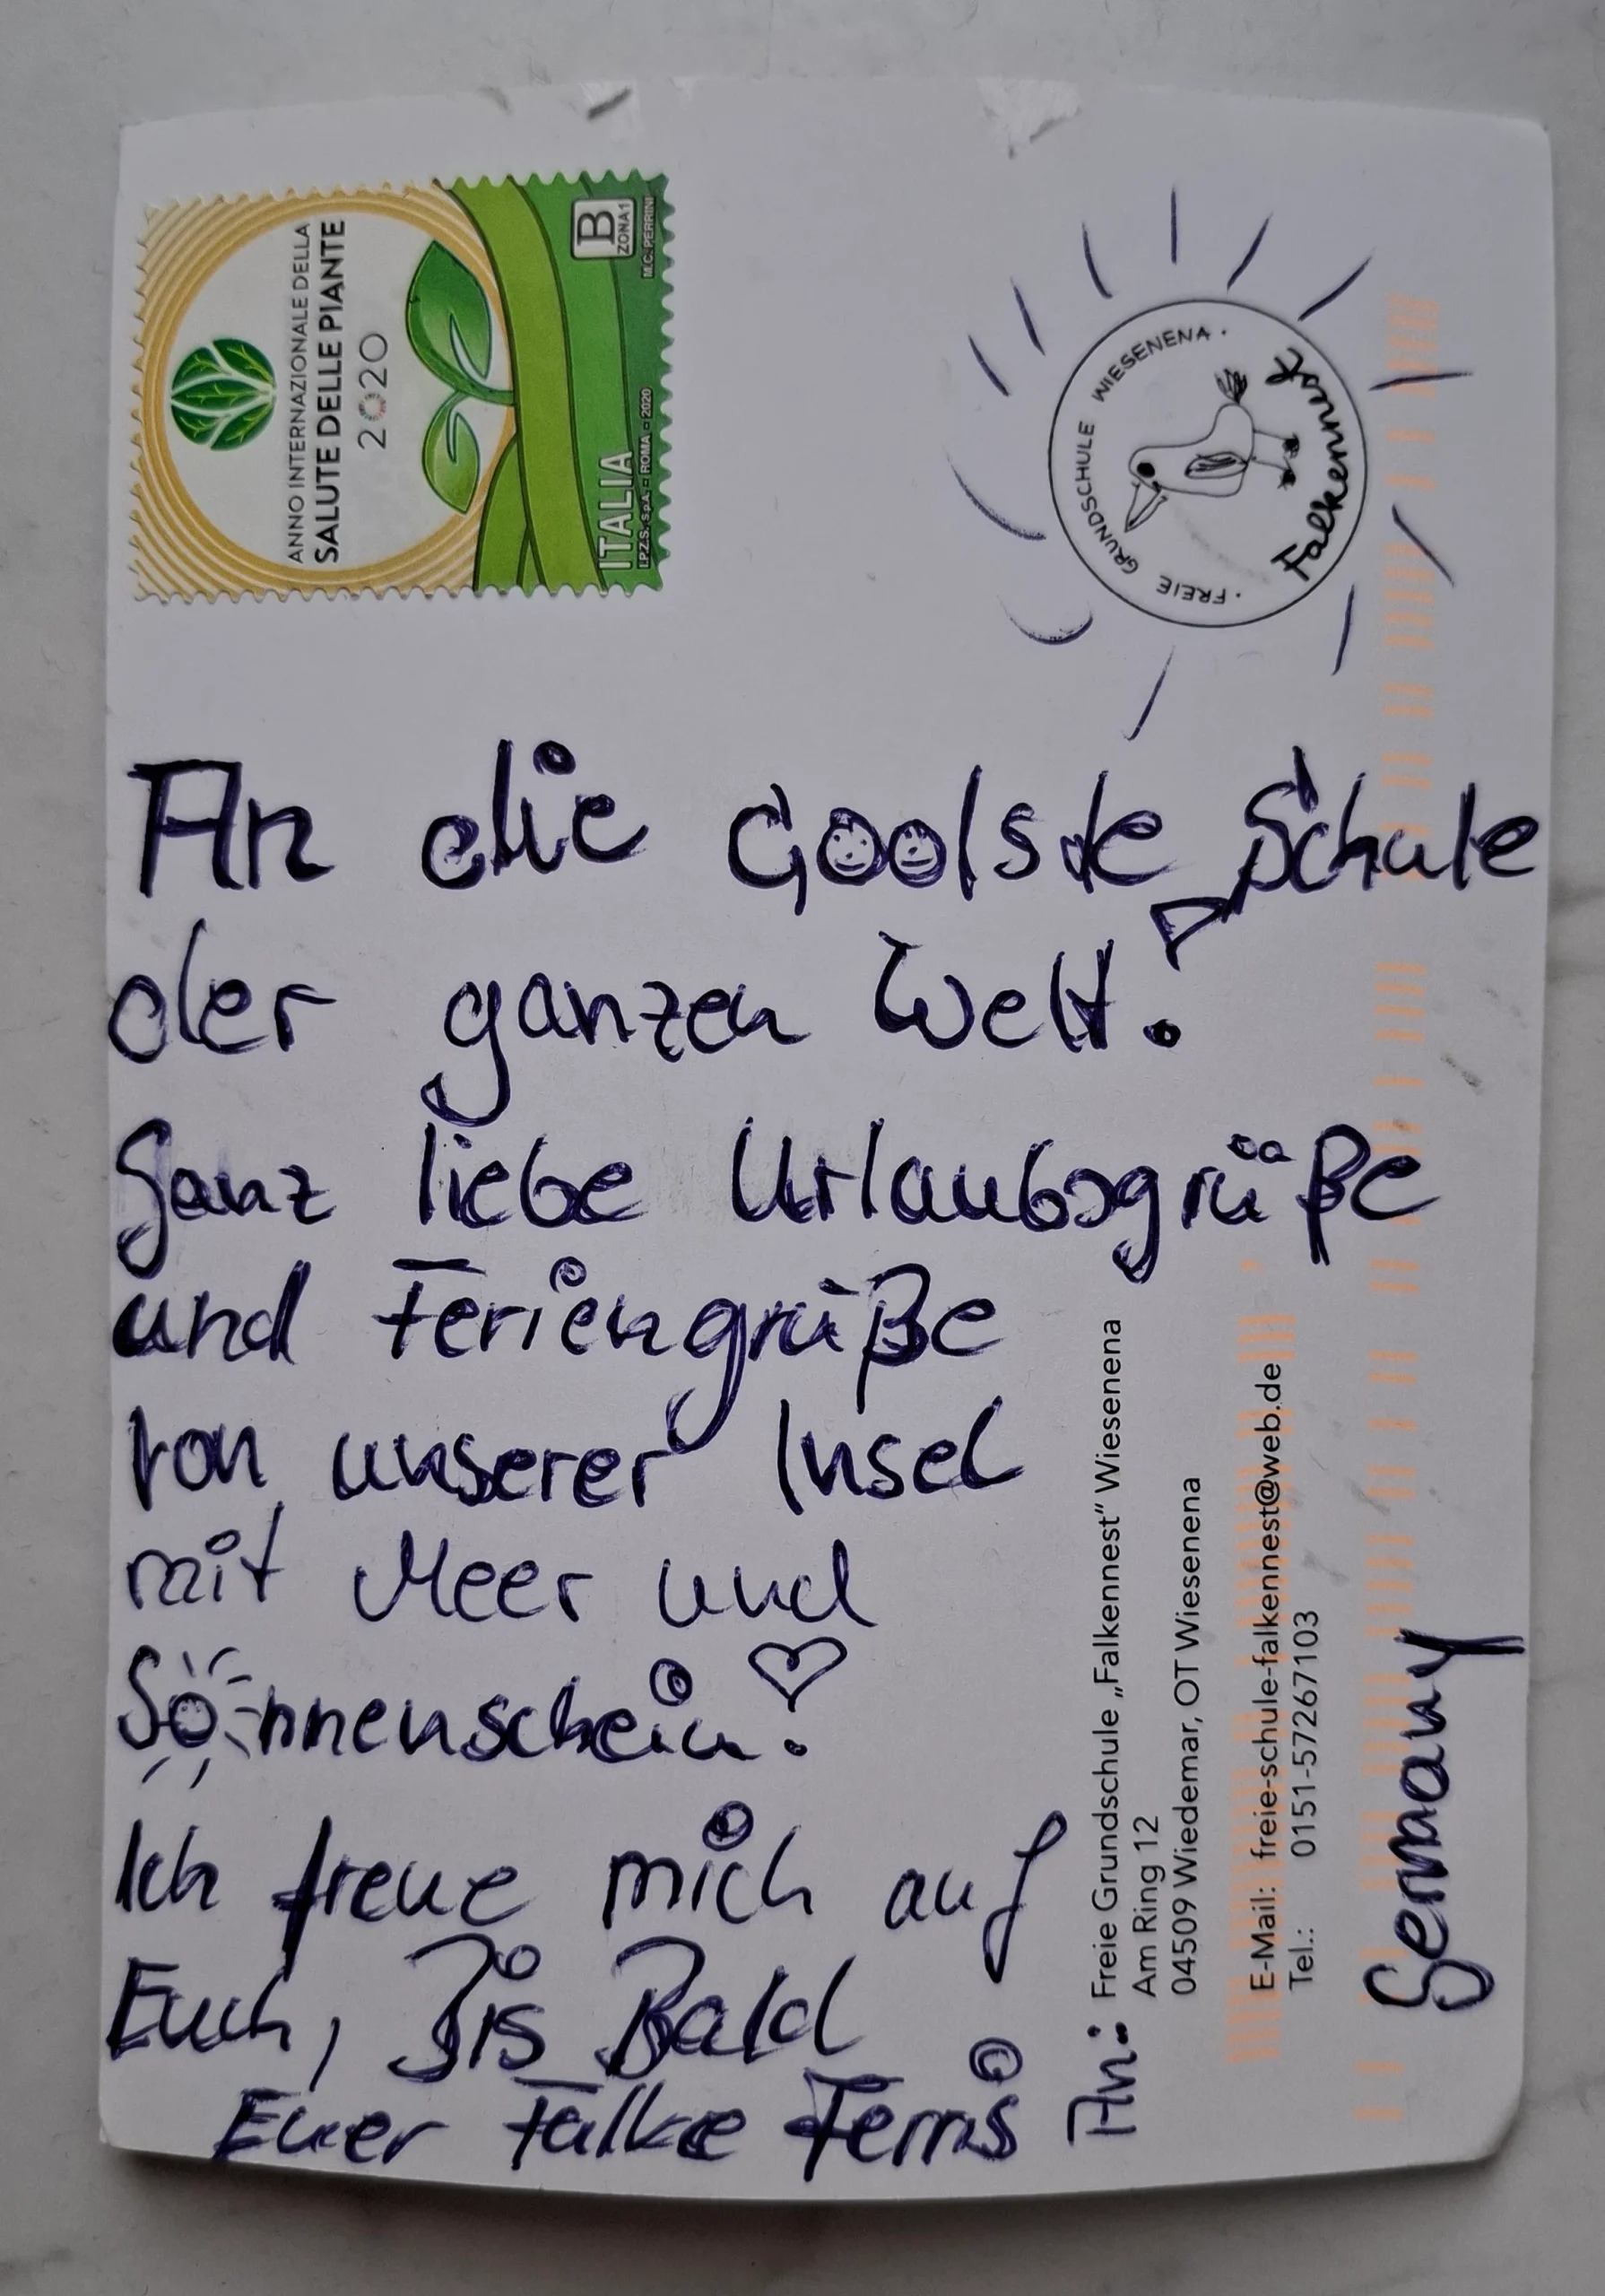 ANNO INTERNAZIONALE DELLA
SALUTE DELLE PIANTE
2020
ITALIA
I.P.Z.S. S.p.A. - ROMA - 2020
B
ZONA 1
M.C. PERRINI
· FREIE GRUNDSCHULE WIESENENA ·
Falkennest
An die Goolste Schule
der ganzen Welt!
Ganz liebe Urlaubsgrüße
und Feriengrüße
von unserer Insel
mit Meer und
Sonnenschein!
Ich freue mich auf
Euch, Bis Bald
Euer Falke
An:
Freie Grundschule „Falkennest“ Wiesenena
Am Ring 12
04509 Wiedemar, OT Wiesenena
E-Mail: freie-schule-falkennest@web.de
Tel.: 0151-57267103
Germany